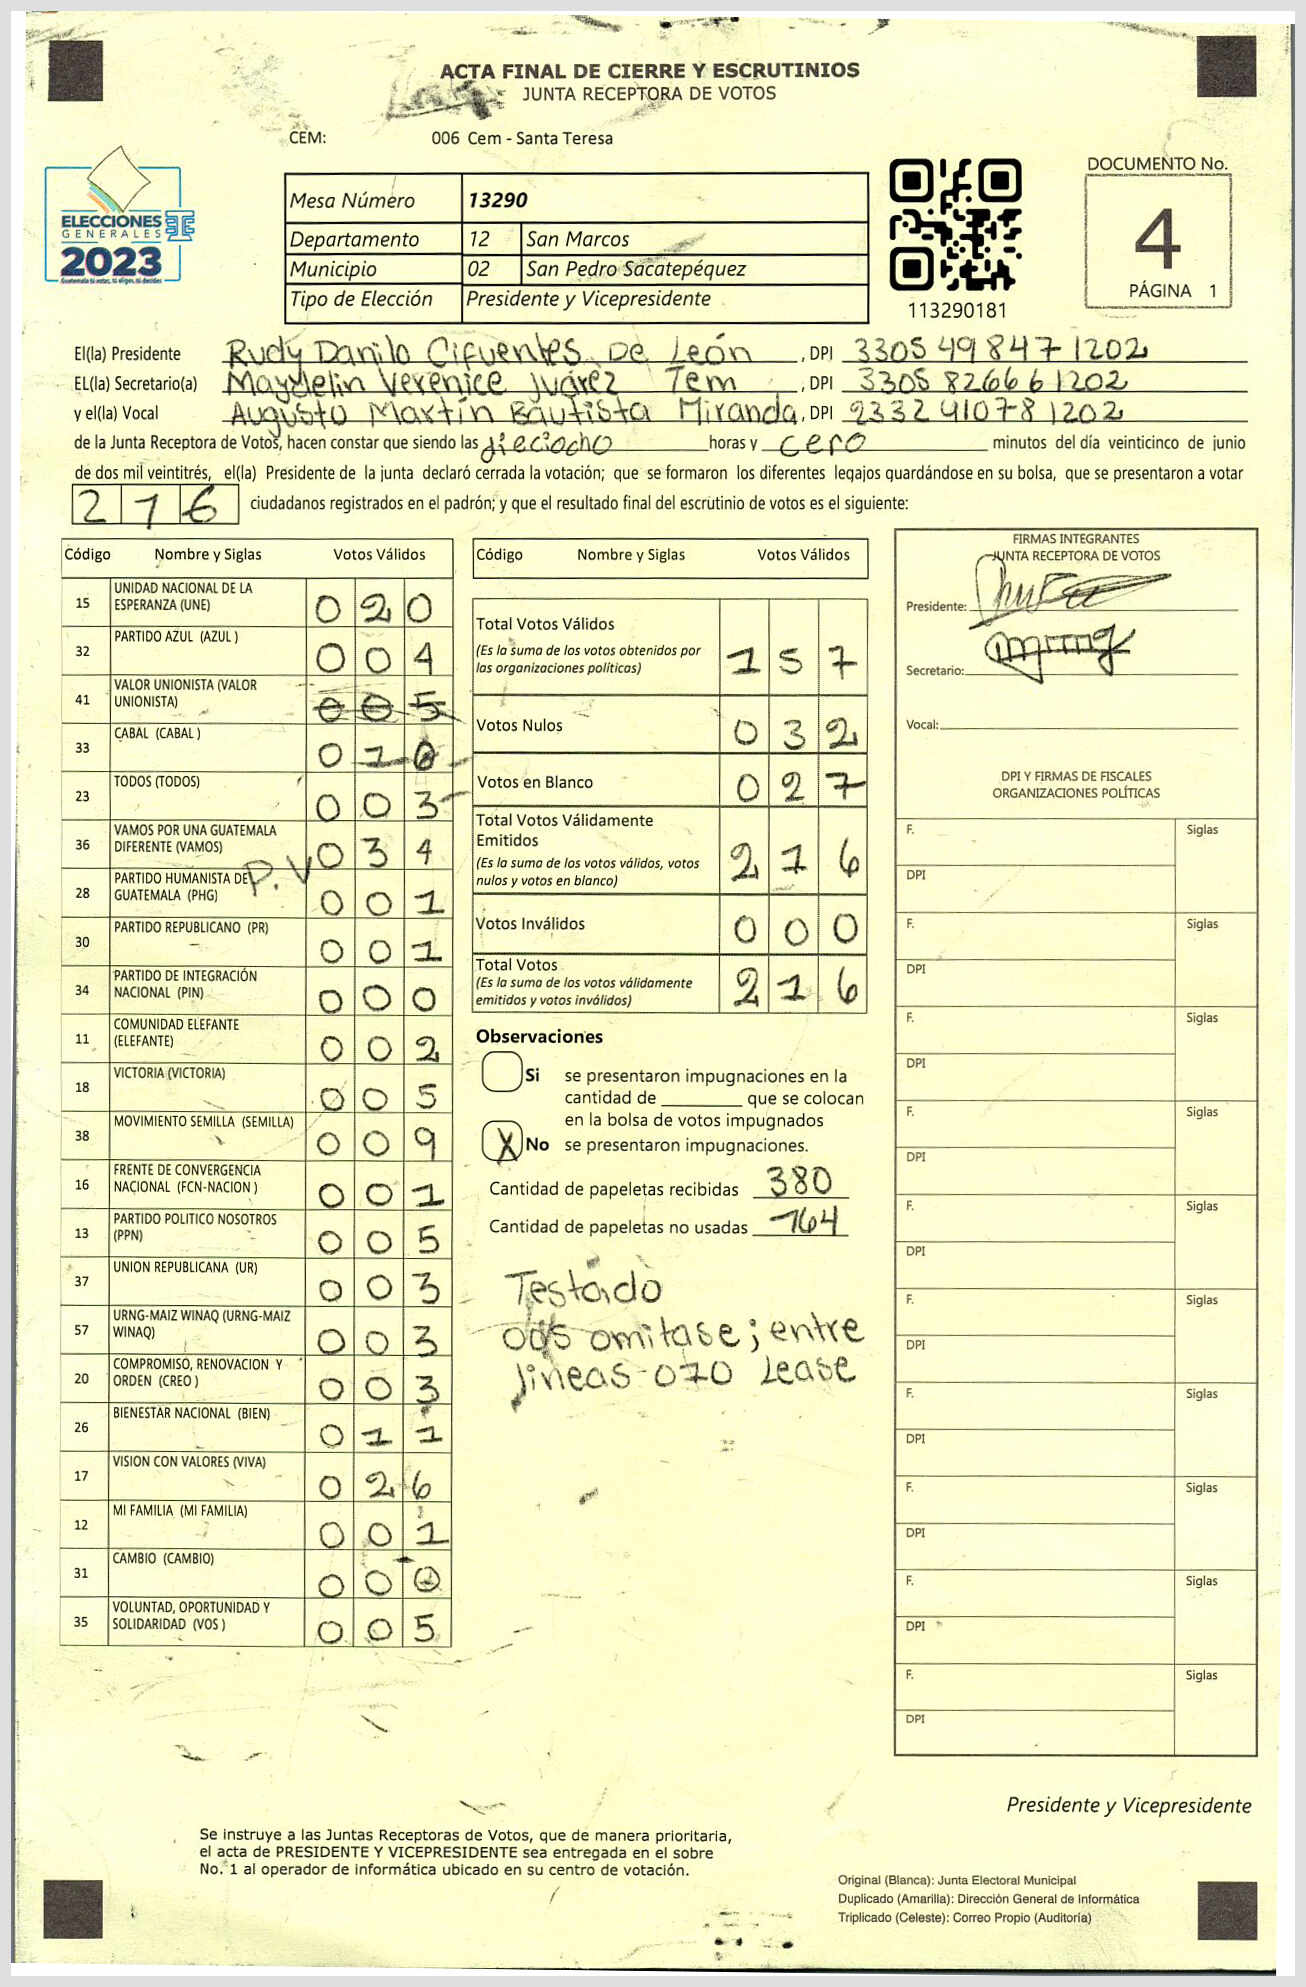 ACTA FINAL DE CIERRE Y ESCRUTINIOS
JUNTA RECEPTORA DE VOTOS
CEM: 006 Cem - Santa Teresa
ELECCIONES
GENERALES
2023
Guatemala tú votas, tú eliges, tú decides
Mesa Número 13290
Departamento 12 San Marcos
Municipio 02 San Pedro Sacatepéquez
Tipo de Elección Presidente y Vicepresidente
113290181
DOCUMENTO No.
4
PÁGINA 1
El(la) Presidente Rudy Danilo Cifuentes De León, DPI 3305 49847 1202
EL(la) Secretario(a) Maydelin Verenice Juárez Tem, DPI 3305 82666 1202
y el(la) Vocal Augusto Martín Bautista Miranda, DPI 2332 41078 1202
de la Junta Receptora de Votos, hacen constar que siendo las dieciocho horas y cero minutos del día veinticinco de junio
de dos mil veintitrés, el(la) Presidente de la junta declaró cerrada la votación; que se formaron los diferentes legajos guardándose en su bolsa, que se presentaron a votar
216 ciudadanos registrados en el padrón; y que el resultado final del escrutinio de votos es el siguiente:
Código Nombre y Siglas Votos Válidos
15 UNIDAD NACIONAL DE LA ESPERANZA (UNE) 020
32 PARTIDO AZUL (AZUL ) 004
41 VALOR UNIONISTA (VALOR UNIONISTA) 005
33 CABAL (CABAL ) 010
23 TODOS (TODOS) 003
36 VAMOS POR UNA GUATEMALA DIFERENTE (VAMOS) 034
P.V
28 PARTIDO HUMANISTA DE GUATEMALA (PHG) 001
30 PARTIDO REPUBLICANO (PR) 001
34 PARTIDO DE INTEGRACIÓN NACIONAL (PIN) 000
11 COMUNIDAD ELEFANTE (ELEFANTE) 002
18 VICTORIA (VICTORIA) 005
38 MOVIMIENTO SEMILLA (SEMILLA) 009
16 FRENTE DE CONVERGENCIA NACIONAL (FCN-NACION ) 001
13 PARTIDO POLITICO NOSOTROS (PPN) 005
37 UNION REPUBLICANA (UR) 003
57 URNG-MAIZ WINAQ (URNG-MAIZ WINAQ) 003
20 COMPROMISO, RENOVACION Y ORDEN (CREO ) 003
26 BIENESTAR NACIONAL (BIEN) 011
17 VISION CON VALORES (VIVA) 026
12 MI FAMILIA (MI FAMILIA) 001
31 CAMBIO (CAMBIO) 000
35 VOLUNTAD, OPORTUNIDAD Y SOLIDARIDAD (VOS ) 005
Código Nombre y Siglas Votos Válidos
Total Votos Válidos 157
(Es la suma de los votos obtenidos por las organizaciones políticas)
Votos Nulos 032
Votos en Blanco 027
Total Votos Válidamente Emitidos 216
(Es la suma de los votos válidos, votos nulos y votos en blanco)
Votos Inválidos 000
Total Votos 216
(Es la suma de los votos válidamente emitidos y votos inválidos)
Observaciones
Si se presentaron impugnaciones en la
cantidad de ________ que se colocan
en la bolsa de votos impugnados
X No se presentaron impugnaciones.
Cantidad de papeletas recibidas 380
Cantidad de papeletas no usadas 164
Testado
005 omitase; entre
lineas-010 Lease
FIRMAS INTEGRANTES
JUNTA RECEPTORA DE VOTOS
Presidente:
Secretario:
Vocal:
DPI Y FIRMAS DE FISCALES
ORGANIZACIONES POLÍTICAS
F. Siglas
DPI
F. Siglas
DPI
F. Siglas
DPI
F. Siglas
DPI
F. Siglas
DPI
F. Siglas
DPI
F. Siglas
DPI
F. Siglas
DPI
F. Siglas
DPI
F. Siglas
DPI
Presidente y Vicepresidente
Se instruye a las Juntas Receptoras de Votos, que de manera prioritaria,
el acta de PRESIDENTE Y VICEPRESIDENTE sea entregada en el sobre
No. 1 al operador de informática ubicado en su centro de votación.
Original (Blanca): Junta Electoral Municipal
Duplicado (Amarilla): Dirección General de Informática
Triplicado (Celeste): Correo Propio (Auditoría)